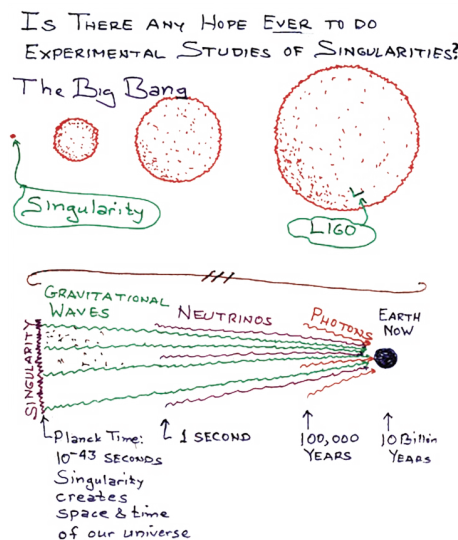 IS THERE ANY HOPE EVER TO DO
EXPERIMENTAL STUDIES OF SINGULARITIES?
The Big Bang
Singularity
LIGO
GRAVITATIONAL
WAVES
NEUTRINOS
PHOTONS
EARTH
NOW
SINGULARITY
Planck Time:
10-43 SECONDS
Singularity
creates
space & time
of our universe
1 SECOND
100,000
YEARS
10 Billion
YEARS